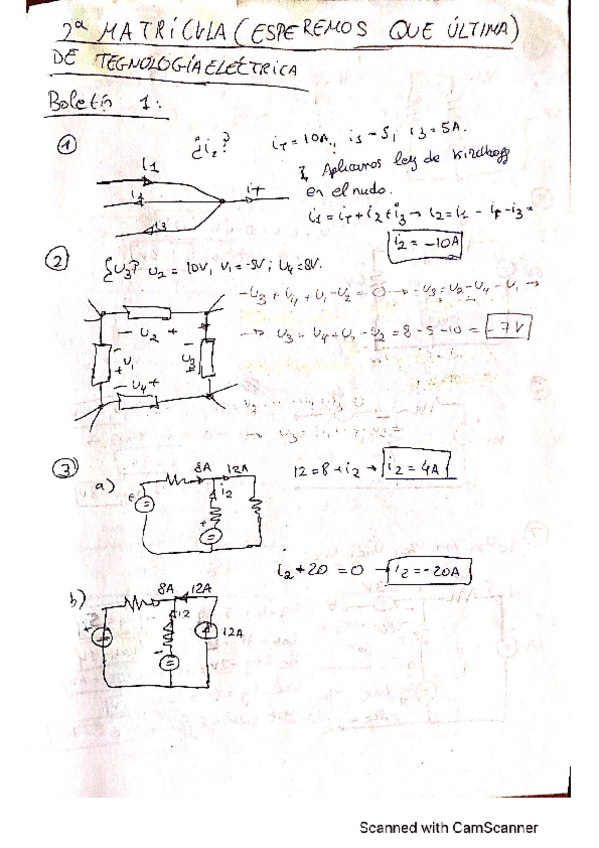 2ª MATRÍCULA (ESPEREMOS QUE ÚLTIMA)
DE TEGNOLOGÍA ELÉCTRICA
Boletín 1:
① ¿i2? iT = 10A,
i3 = 5A.
Aplicamos ley de
en el nudo.
i1 iT
i1 = iT + i2 + i3 → i2 = i1 - iT - i3 =
i2 = -10A
i3
② ¿U3? U2 = 10V, U1 = -5V; U4 = 8V.
-U3 + U4 + U1 - U2 = 0 → -U3 = U2 - U4 - U1 →
→ U3 = U4 + U1 - U2 = 8 - 5 - 10 = -7V
- U2 +
+ U1 -
U3
- U4 +
③ a) 8A 12A
i2
12 = 8 + i2 → i2 = 4A
b) 8A 12A
i2
12A
i2 + 20 = 0 → i2 = -20A
Scanned with CamScanner